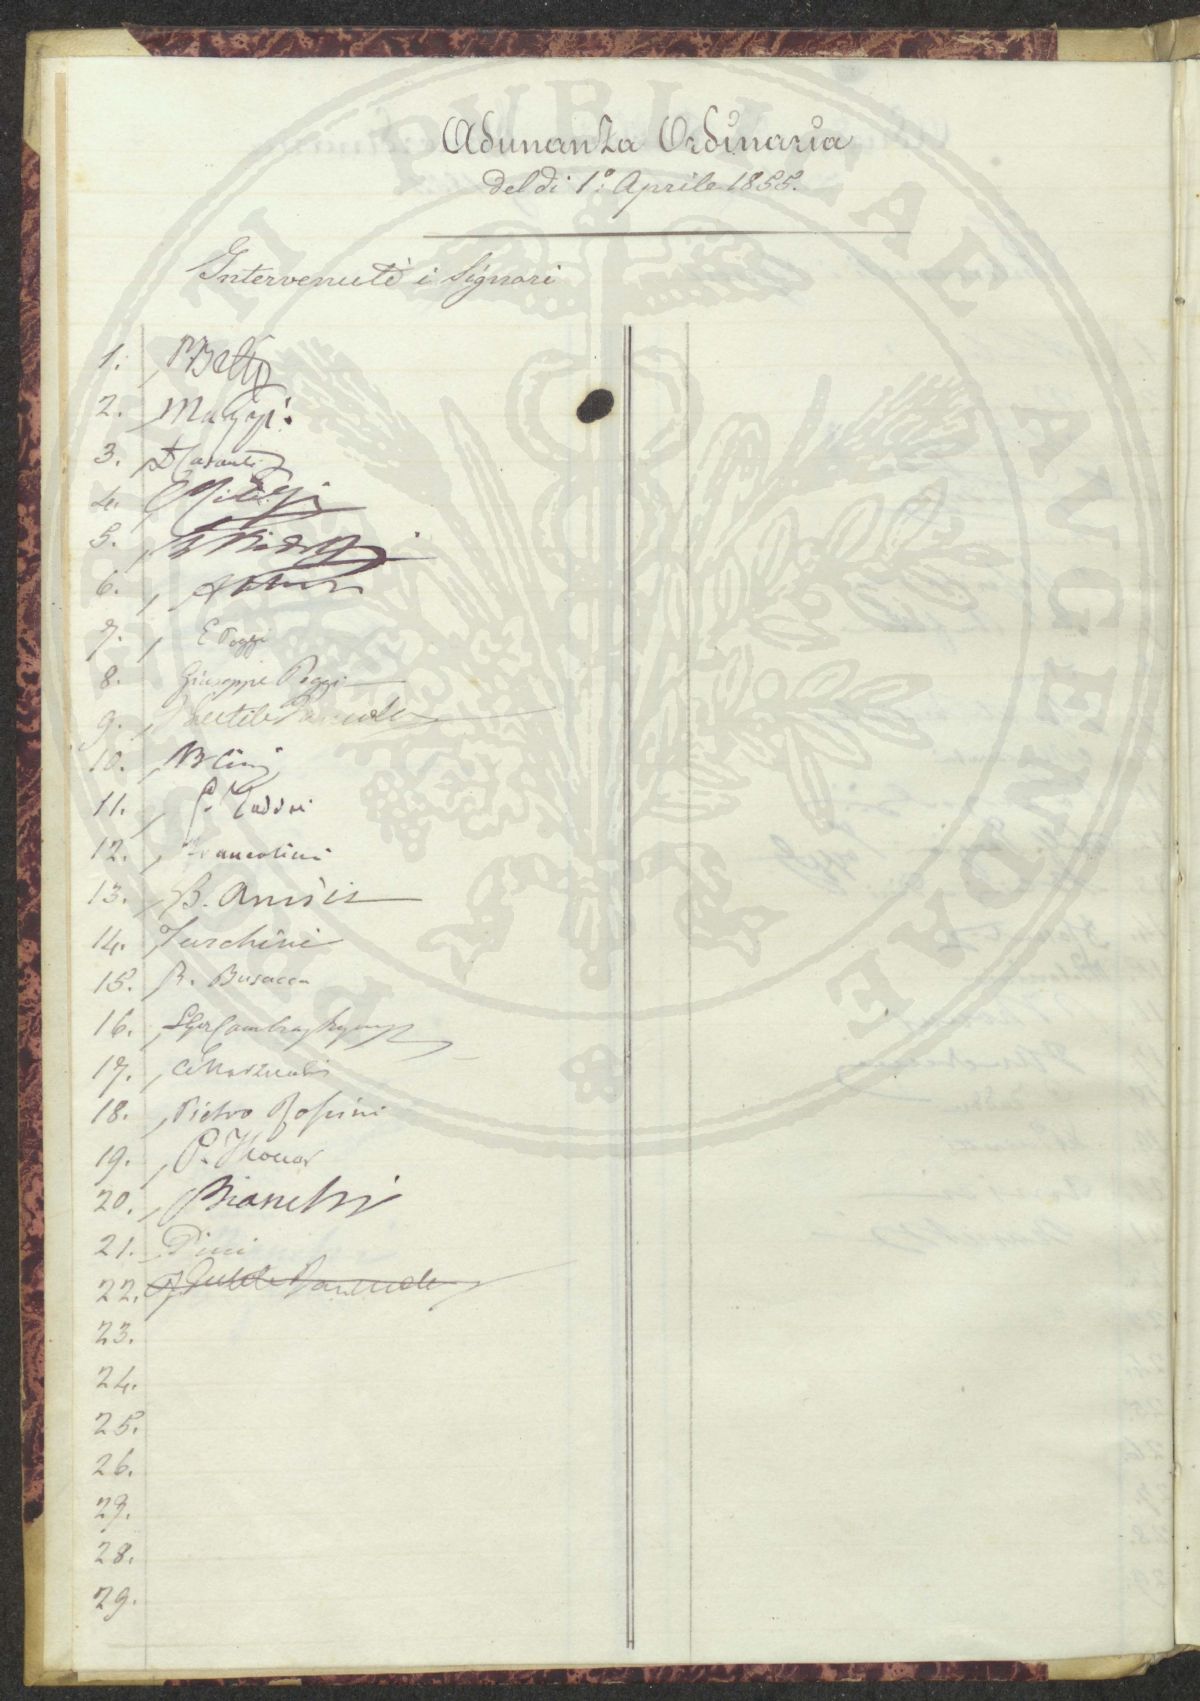 Adunanza Ordinaria
del dì 1.º Aprile 1855.
Intervenuti i Signori
1. P. Betti
2. Maggi
3.
4.
5. E. Ridolfi
6.
7. E Poggi
8. Giuseppe Poggi
9.
10. B Cini
11. G. Taddei
12. Francolini
13. B. Amici
14. Turchini
15. R. Busacca
16. Cambray Digny
17. C. Martelli
18. Pietro Rossini
19. P. Thouar
20. Bianchi
21. Pini
22.
23.
24.
25.
26.
27.
28.
29.
PROSPERITATI PUBLICAE AUGENDAE